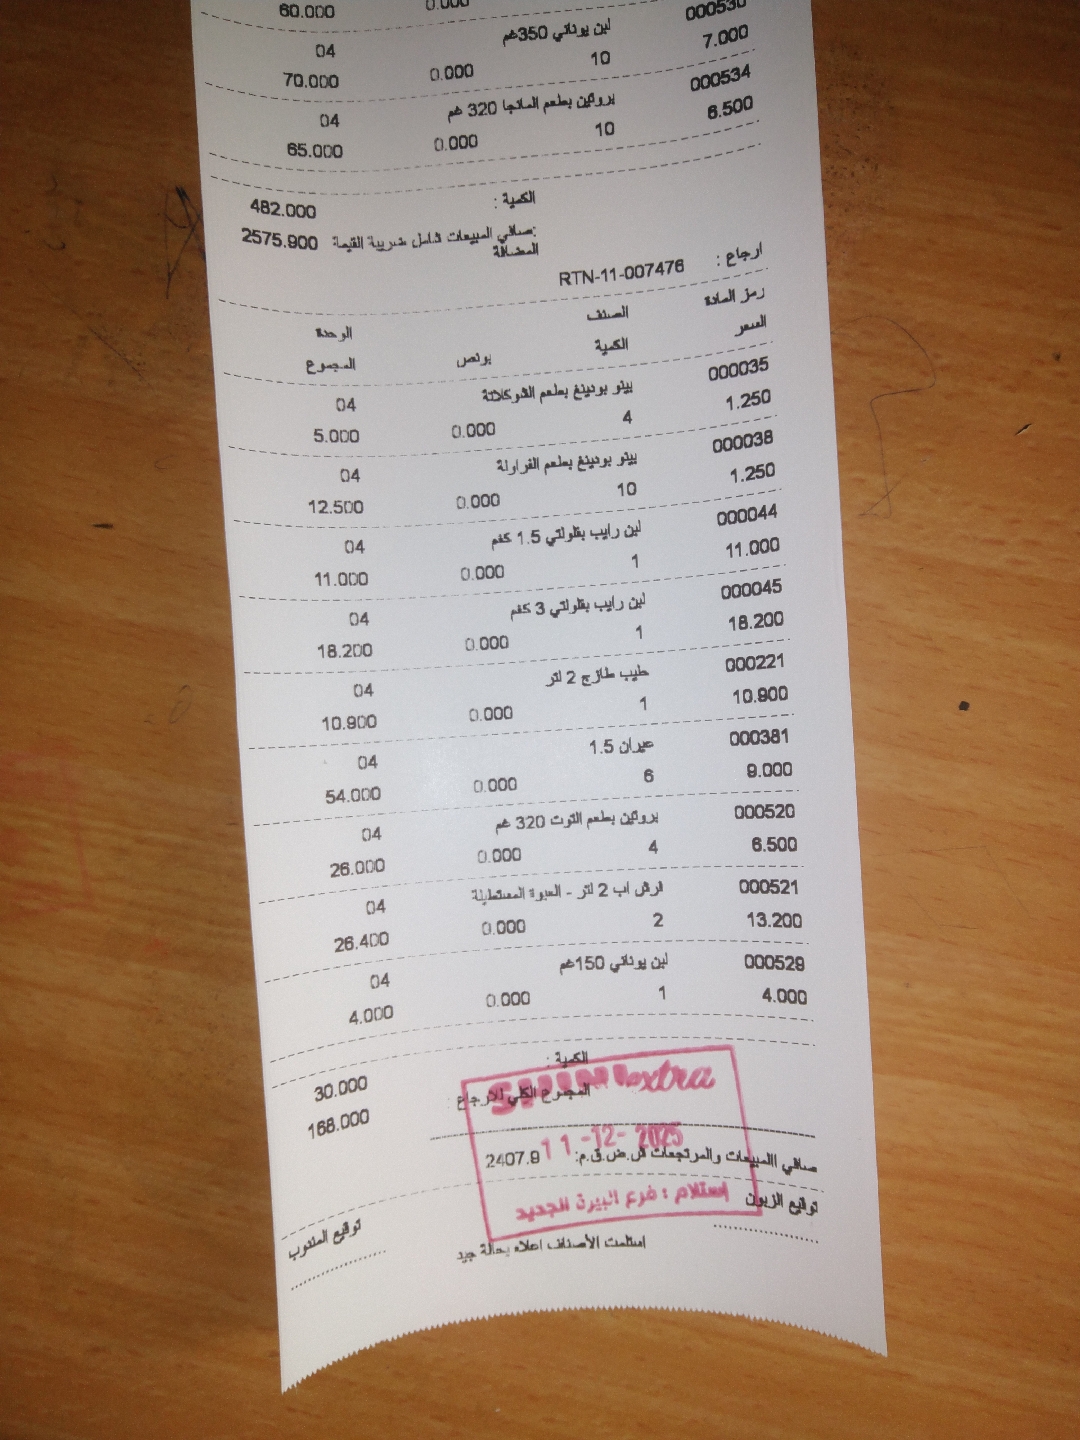 60.000 0.000 000530
لبن يوناني 350غم 04
7.000 10 0.000 70.000
000534 بروتين بطعم المانجا 320 غم 04
6.500 10 0.000 65.000
الكمية : 482.000
صافي المبيعات شامل ضريبة القيمة: 2575.900
المضافة
ارجاع : RTN-11-007476
رمز المادة الصنف الوحدة
السعر الكمية بونص المجموع
000035 بيتو بودينغ بطعم الشوكلاتة 04
1.250 4 0.000 5.000
000038 بيتو بودينغ بطعم الفراولة 04
1.250 10 0.000 12.500
000044 لبن رايب بقلولتي 1.5 كغم 04
11.000 1 0.000 11.000
000045 لبن رايب بقلولتي 3 كغم 04
18.200 1 0.000 18.200
000221 حليب طازج 2 لتر 04
10.900 1 0.000 10.900
000381 عيران 1.5 04
9.000 6 0.000 54.000
000520 بروتين بطعم التوت 320 غم 04
6.500 4 0.000 26.000
000521 فرش اب 2 لتر - العبوة المستطيلة 04
13.200 2 0.000 26.400
000529 لبن يوناني 150غم 04
4.000 1 0.000 4.000
الكمية : 30.000
المجموع الكلي للارجاع : 168.000
extra
11-12-2025
صافي االمبيعات والمرتجعات ش.ض.ق.م: 2407.9
استلام : فرع البيرة الجديد
توقيع الزبون توقيع المندوب
استلمت الأصناف اعلاه بحالة جيد